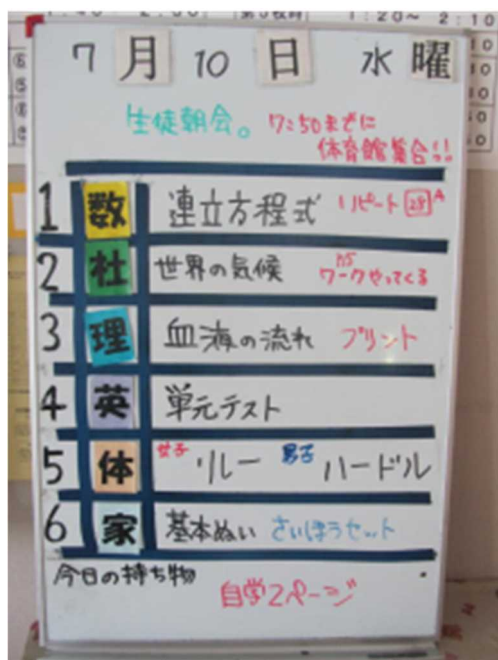 1:20〜 2:10
7月10日 水曜
生徒朝会。 7:50までに
体育館集合!!
1 数 連立方程式 リピート 28 A
2 社 世界の気候 ワークやってくる
3 理 血液の流れ プリント
4 英 単元テスト
5 体 女子 リレー 男子 ハードル
6 家 基本ぬい さいほうセット
今日の持ち物
自学2ページ